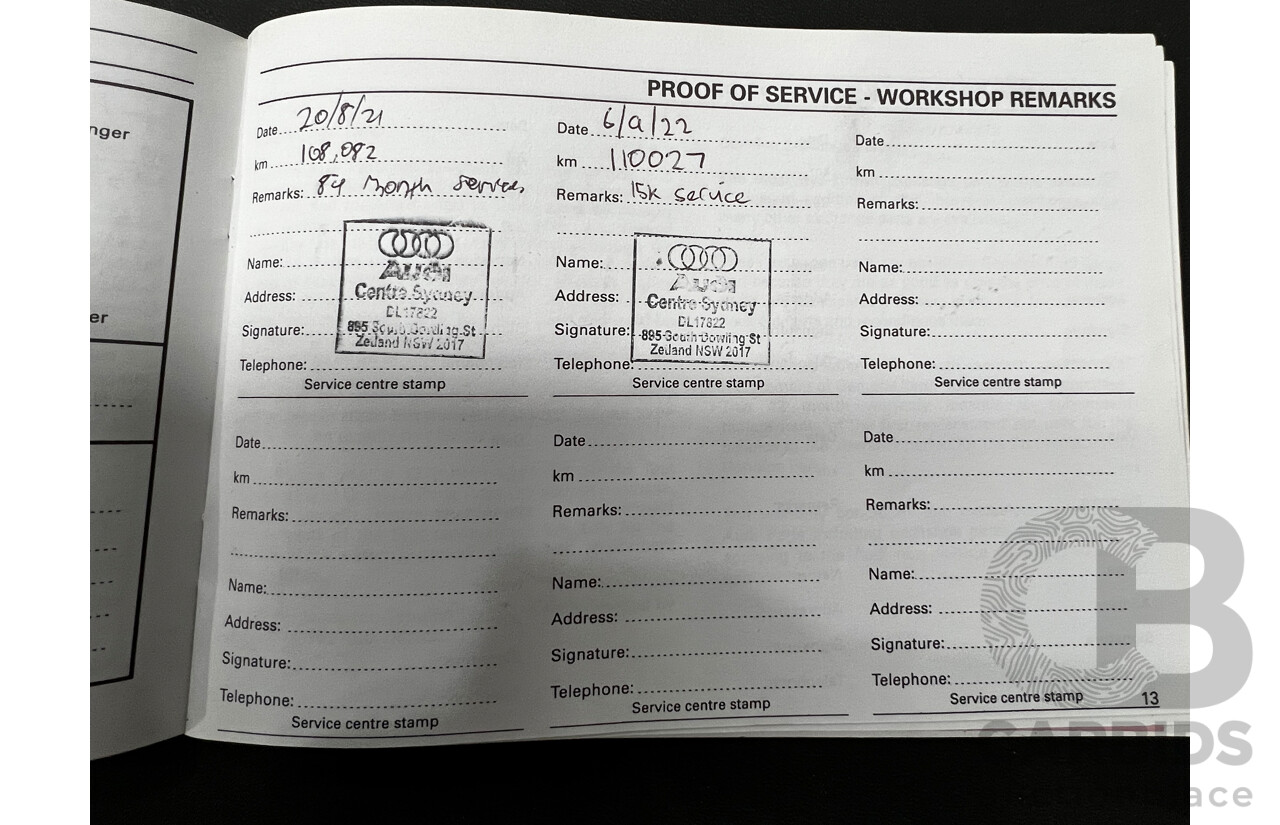 nger
er
PROOF OF SERVICE - WORKSHOP REMARKS
Date 20/8/21
km 108,082
Remarks: 84 Month Service,
Name:
Address:
Signature:
Telephone:
Audi
Centre Sydney
DL17822
895 South Dowling St
Zetland NSW 2017
Service centre stamp
Date 6/9/22
km 110027
Remarks: 15K service
Name:
Address:
Signature:
Telephone:
Audi
Centre Sydney
DL17822
895 South Dowling St
Zetland NSW 2017
Service centre stamp
Date
km
Remarks:
Name:
Address:
Signature:
Telephone:
Service centre stamp
Date
km
Remarks:
Name:
Address:
Signature:
Telephone:
Service centre stamp
Date
km
Remarks:
Name:
Address:
Signature:
Telephone:
Service centre stamp
Date
km
Remarks:
Name:
Address:
Signature:
Telephone:
Service centre stamp
13
CB
CARBIDS
ace